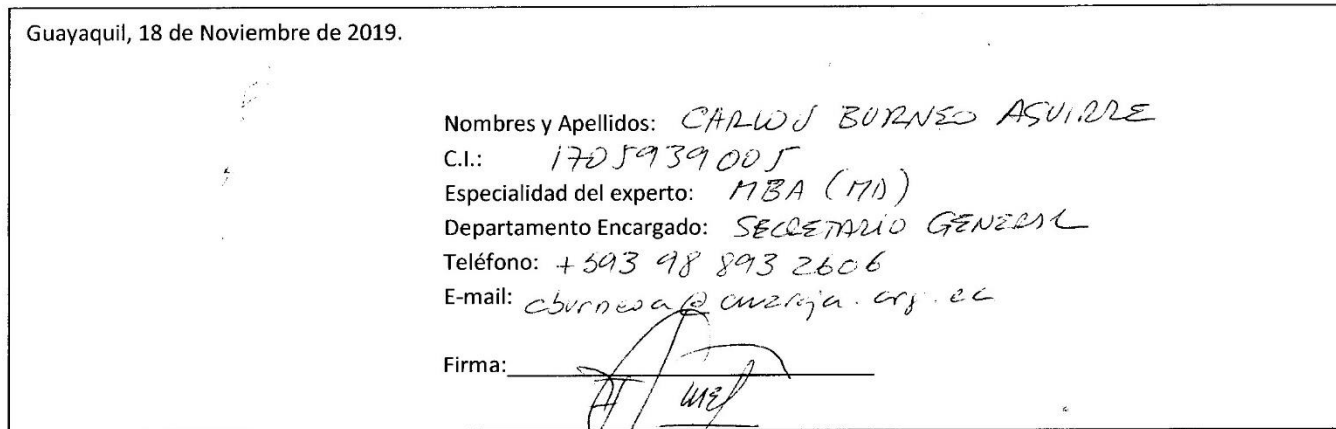 Guayaquil, 18 de Noviembre de 2019.
Nombres y Apellidos: CARLOS BURNEO AGUIRRE
C.I.: 1705939005
Especialidad del experto: MBA (MD)
Departamento Encargado: SECRETARIO GENERAL
Teléfono: +593 98 893 2606
E-mail: cburneoa@cruzroja.org.ec
Firma: